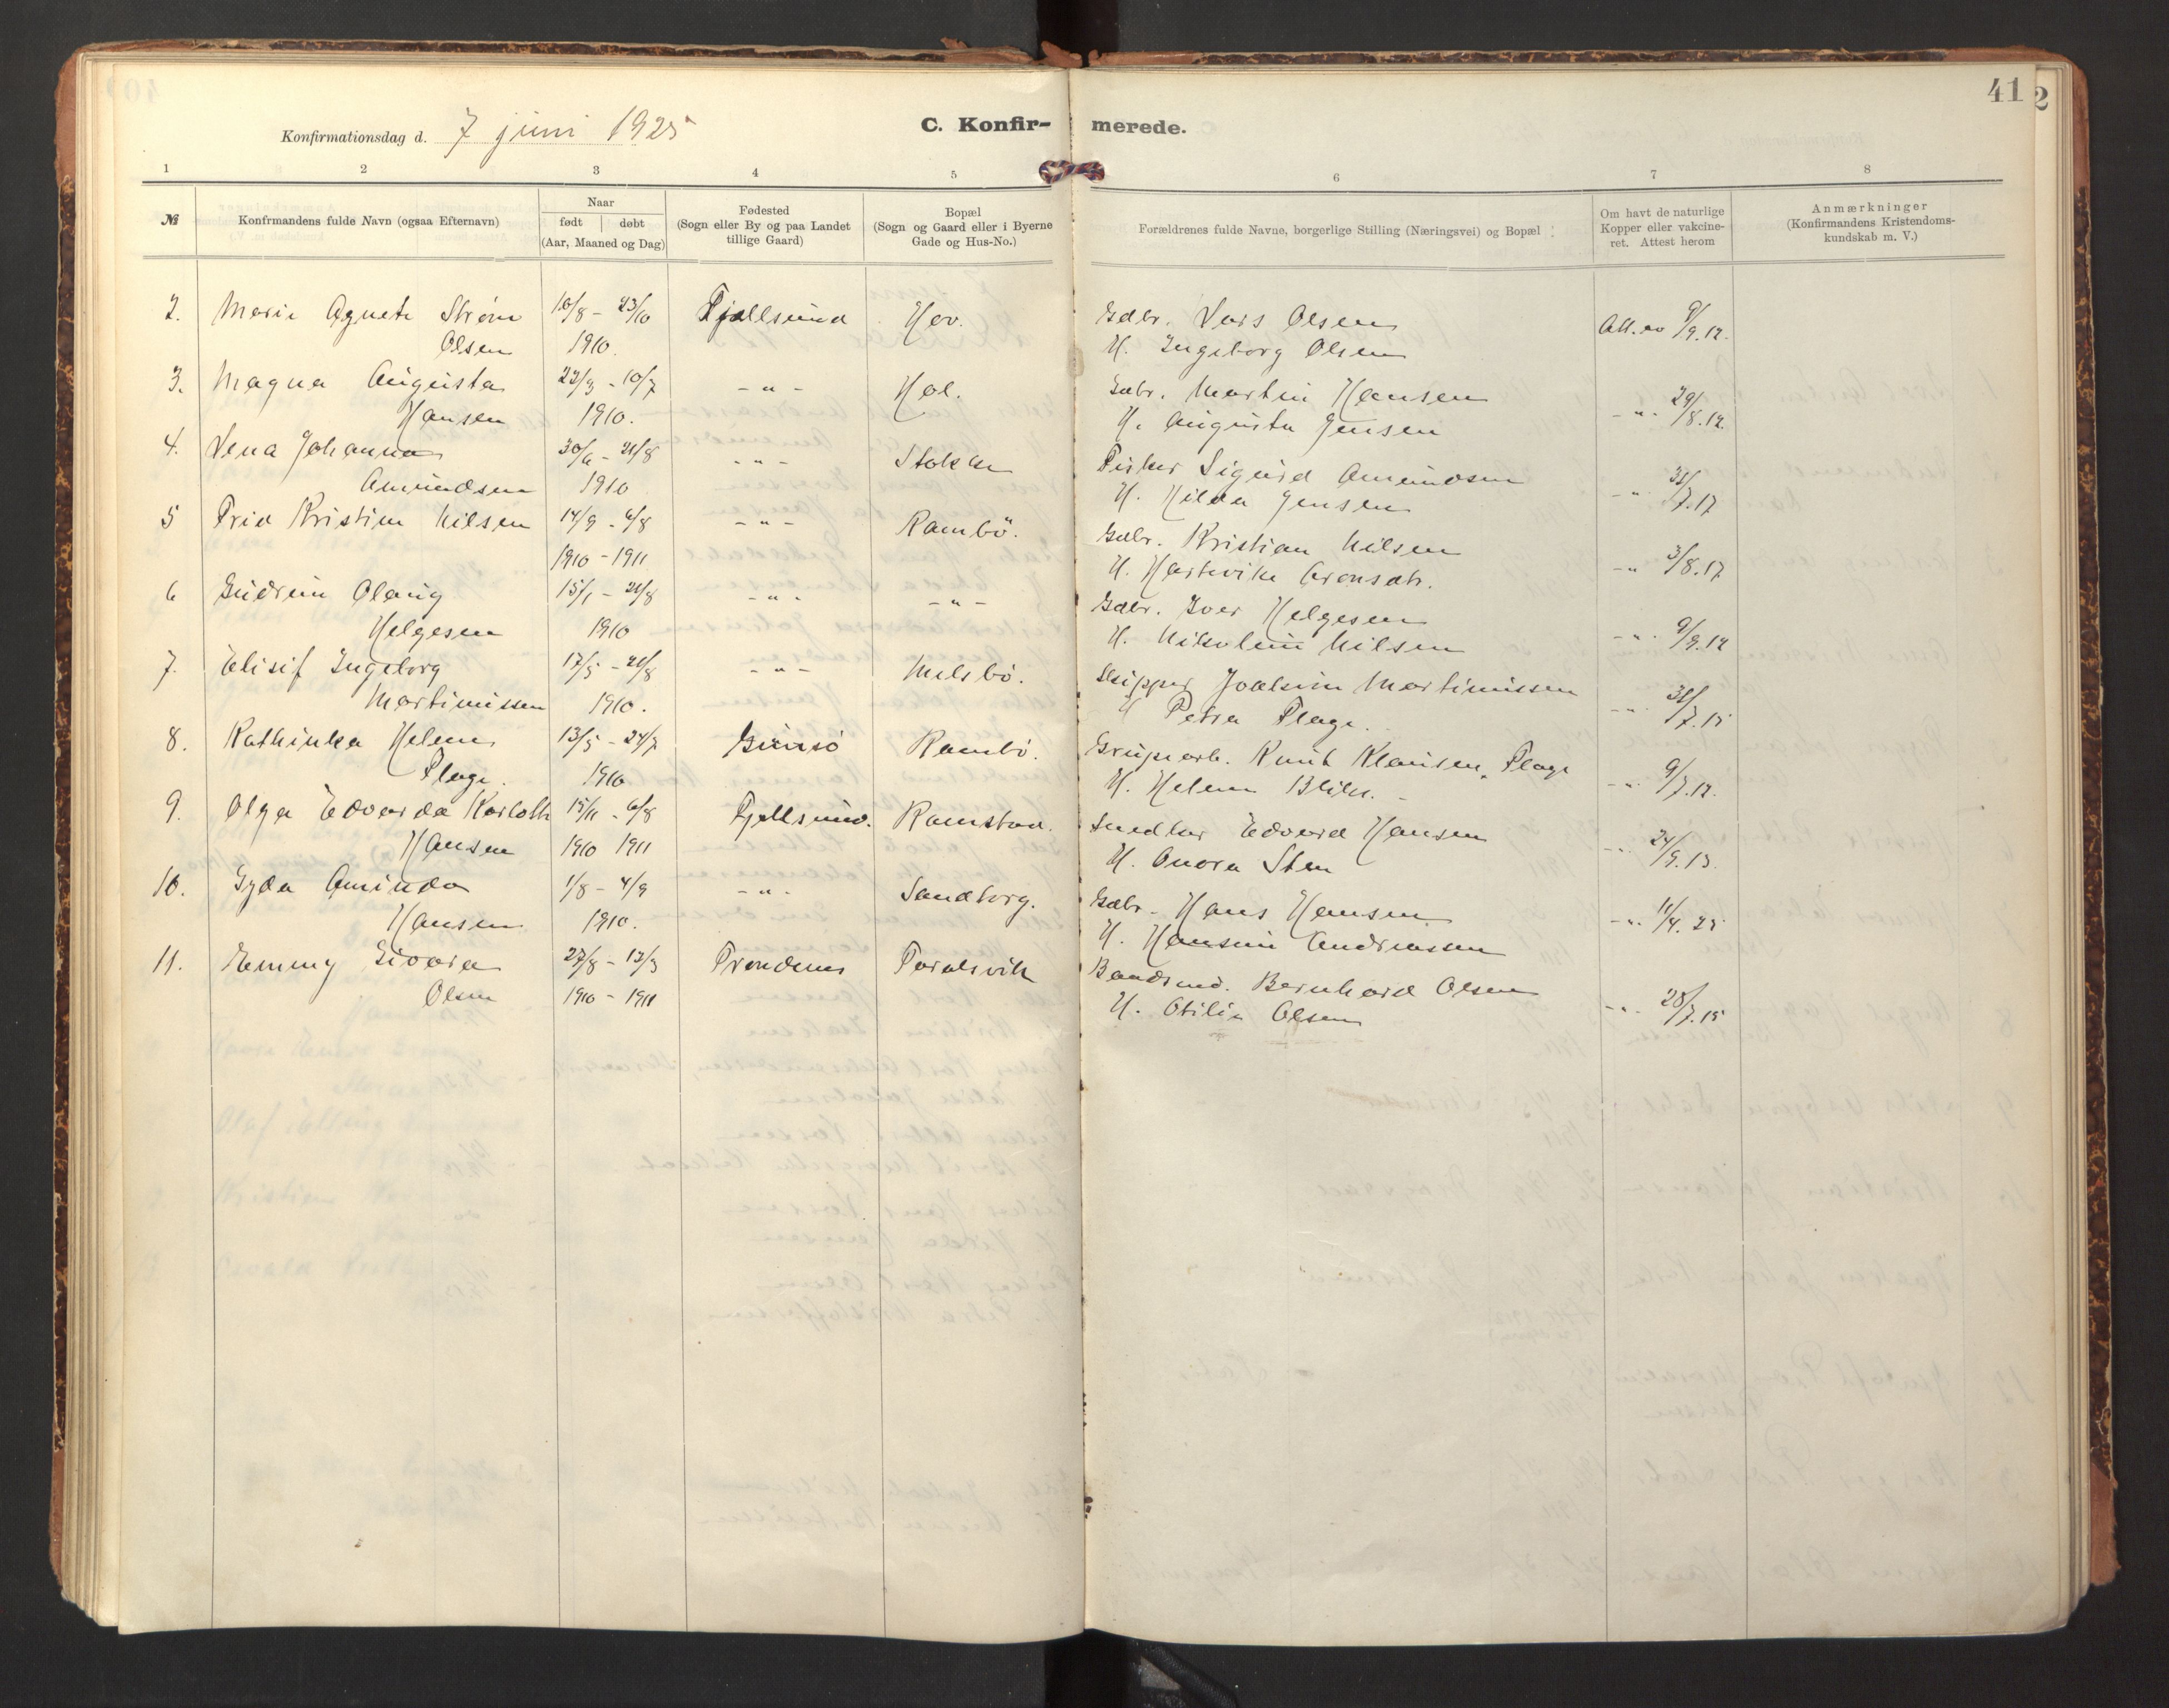 41
2
Konfirmationsdag d. 7 juni 1925
C. Konfir- merede.
1 2 3 4 5 6 7 8
№
Konfrmandens fulde Navn (ogsaa Efternavn)
Naar
født | døbt
(Aar, Maaned og Dag)
Fødested
(Sogn eller By og paa Landet
tillige Gaard)
Bopæl
(Sogn og Gaard eller i Byerne
Gade og Hus-No.)
Forældrenes fulde Navne, borgerlige Stilling (Næringsvei) og Bopæl
Om havt de naturlige
Kopper eller vakcine-
ret. Attest herom
Anmærkninger
(Konfirmandens Kristendoms-
kundskab m. V.)
2. Marie Agnete Strøm 10/8 - 23/10 Fjellsund Hov. Gdbr. Lars Olsen Att. av 9/9.12.
Olsen 1910. H. Ingeborg Olsen
3. Magna Augusta 22/3 - 10/7 - " - Hol. Gdbr. Martin Hansen - " - 29/8.12.
Hansen 1910. H. Augusta Jensen
4. Lena Johanna 30/6 - 21/8 - " - Stokke Fisker Sigurd Amundsen - " - 31/7.17
Amundsen 1910 H. Hilda Jensen
5 Frid Kristine Nilsen 14/9 - 6/8 - " - Rambö. Gdbr. Kristian Nilsen - " 3/8.17
1910 - 1911 H. Hartvike Aronsdtr.
6 Gudrun Olaug 15/1 - 21/8 - " - - " - Gdbr. Iver Helgesen - " - 9/9.12
Helgesen 1910 H. Nikoline Nilsen
7. Elisif Ingeborg 17/5 - 21/8 - " - Melsbö. Skipper Joakim Martinussen - " - 31/7.15
Martinussen 1910. H Petra Flage.
8. Kathinka Helene 13/5 - 24/7 Gimsö Rambö. Grubearb. Knut Klausen Flage - " - 9/7.12.
Flage. 1910 H. Helene Blikr. -
9. Olga Edvarda Karloth 15/11 - 6/8 Fjellsund. Ramstad. Snedker Edvard Hansen - " - 24/9.13.
Hansen 1910 1911 H. Anora Sten
10. Gyda Aminda 1/8 - 4/9 - " - Sandtorg. Gdbr. Hans Hansen - " - 11/4.25
Hansen 1910. H. Hansine Andreassen
11. Emmy Sivora 27/8 - 12/3 Trondenes Taralsvik Baadsmd. Bernhard Olsen - " - 28/7.15
Olsen 1910 - 1911 H. Otilie Olsen